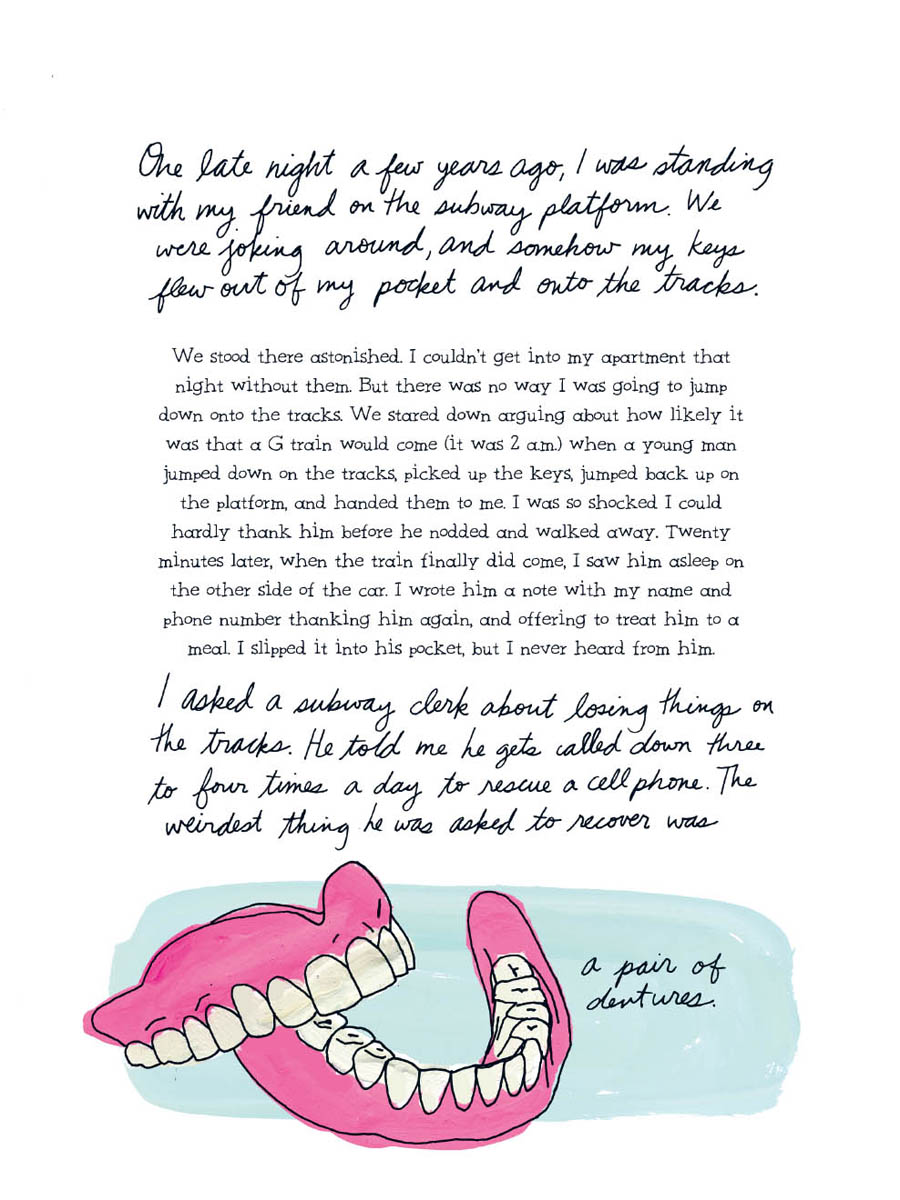 One late night a few years ago, I was standing
with my friend on the subway platform. We
were joking around, and somehow my keys
flew out of my pocket and onto the tracks.
We stood there astonished. I couldn't get into my apartment that
night without them. But there was no way I was going to jump
down onto the tracks. We stared down arguing about how likely it
was that a G train would come (it was 2 a.m.) when a young man
jumped down on the tracks, picked up the keys, jumped back up on
the platform, and handed them to me. I was so shocked I could
hardly thank him before he nodded and walked away. Twenty
minutes later, when the train finally did come, I saw him asleep on
the other side of the car. I wrote him a note with my name and
phone number thanking him again, and offering to treat him to a
meal. I slipped it into his pocket, but I never heard from him.
I asked a subway clerk about losing things on
the tracks. He told me he gets called down three
to four times a day to rescue a cell phone. The
weirdest thing he was asked to recover was
a pair of
dentures.